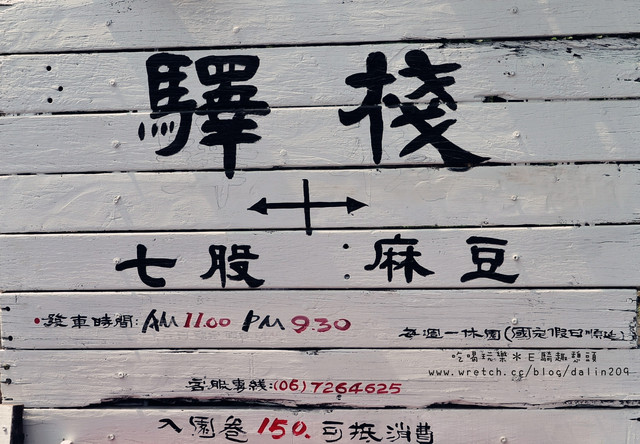 驛棧
七股：麻豆
•發車時間：AM 11.00 PM 9.30
每週一休園(國定假日順延)
吃喝玩樂＊E騎趣憩頭
www.wretch.cc/blog/dalin209
客服專綫:(06)7264625
入園卷150.可抵消費